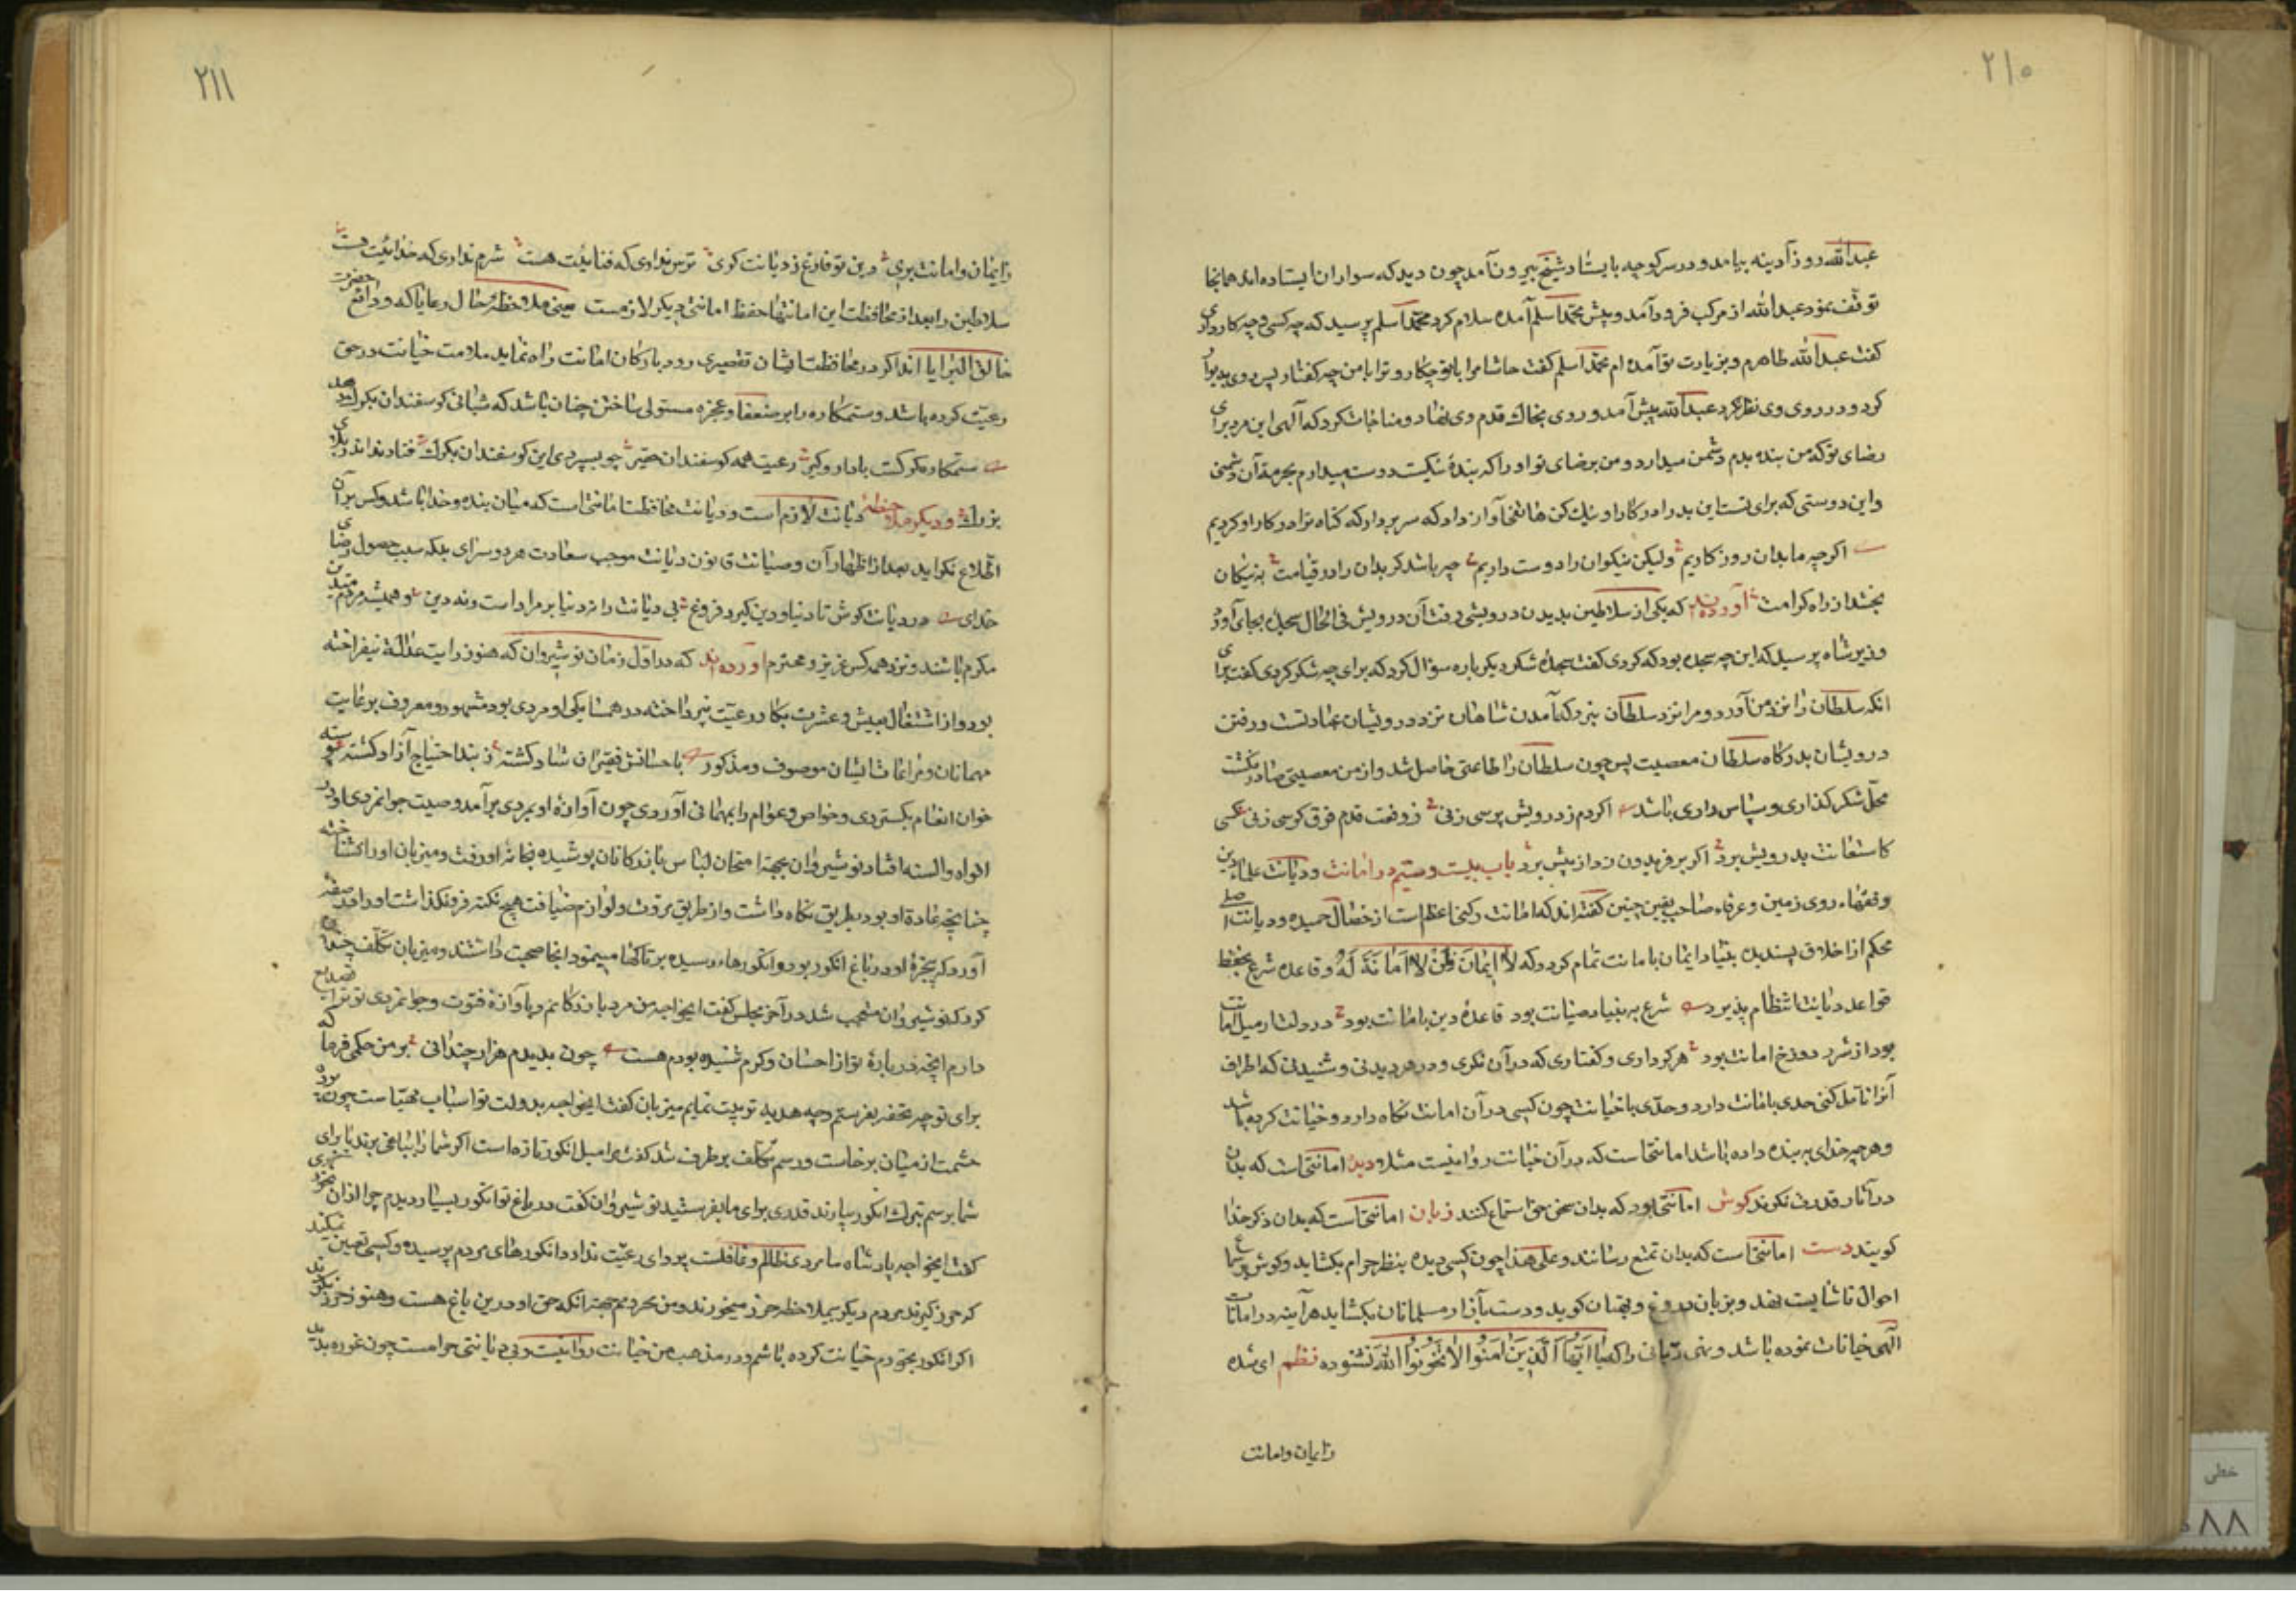 ۲۱۰
عبدالله روز آدینه بیامد و در سر کوچه بایستاد شیخ بیرون آمد چون دید که سواران ایستاده اند همانجا
توقف نمود عبدالله از مرکب فرود آمد و پیش محمد اسلم آمده سلام کرد محمد اسلم پرسید که چه کسی و چه کار داری
گفت عبدالله طاهرم و بزیارت تو آمده ام محمد اسلم گفت حاشا مرا با تو چکار و ترا با من چه گفتار پس روی بدیوار
کرد و در روی وی نظر نکرد عبدالله پیش آمد و روی بخاك قدم وی نهاد و مناجات کرد که آلهی این مرد برای
رضای تو که من بنده بدم دشمن میدارد و من برضای تو او را که بندهٔ نیکست دوست میدارم بحرمت آن دشمنی
و این دوستی که برای تست این بد را در کار او نیك کن هاتفی آواز داد که سر بردار که گناه ترا در کار او کردیم
اگرچه ما بدان روزگاریم ولیکن نیکوان را دوست داریم چه باشد گر بدان را در قیامت به نیکان
بخشد از راه کرامت آورده اند که یکی از سلاطین بدیدن درویشی رفت آن درویش فی الحال سجدهٔ بجای آورد
وزیر شاه پرسید که این چه سجده بود که کردی گفت سجدهٔ شکر دیگر باره سؤال کرد که برای چه شکر کردی گفت برای
انکه سلطان را نزد من آورد و مرا نزد سلطان نبرد که آمدن شاهان نزد درویشان عبادتست و رفتن
درویشان بدرگاه سلطان معصیت پس چون سلطان را طاعتی حاصل شد و از من معصیتی صادر نگشت
محلّ شکر گذاری و سپاس داری باشد اگر دم ز درویش پرسی زنی ز رفعت قدم فوق کرسی زنی کسی
کاستعانت بدرویش برد اگر بر فریدون زد از پیش برد باب بیست و ستیم در امانت و دیانت علماء دین
و فقهاء روی زمین و عرفاء صاحب یقین چنین گفته اند که امانت رکنی اعظم است از خصال حمیده و دیانت اصلی
محکم از اخلاق پسندیده بنیاد ایمان بامانت تمام گردد که لا ایمان لمن لا امانة له و قاعده شرع بحفظ
قواعد دیانت انتظام پذیرد شرع به بنیاد صیانت بود قاعدهٔ دین بامانت بود در دلت ار میل امانت
بود از شرر دوزخ امانت بود هر کرداری و گفتاری که در آن نگری و در هر دیدنی و شنیدنی که اطراف
آنرا تامل کنی حدی بامانت دارد و حدّی با خیانت چون کسی در آن امانت نگاه دارد و خیانت کرده باشد
و هر چه خدای به بنده داده باشد امانتی است که در آن خیانت روا نیست مثلا دیده امانتی است که بدان
در آثار قدرت نگرند گوش امانتی بود که بدان سخن حق استماع کنند زبان امانتی است که بدان ذکر خدا
گویند دست امانتی است که بدان تمتع رسانند و علی هذا چون کسی دیده بنظر حرام بکشاید و گوش بسماع
احوال ناشایست نهد و بزبان دروغ و بهتان گوید و دست بآزار مسلمانان بکشاید هر آینه در امانات
الهی خیانات نموده باشد و نهی ربّانی را که یا ایها الذین امنوا لا تخونوا الله نشنوده نظم ای شده
ز ایمان و امانت
۲۱۱
ز ایمان و امانت بری دین تو فارغ ز دیانت گری ترس نداری که فنائیت هست شرم نداری که خدائیت هست
سلاطین را بعد از محافظت این امانتها حفظ امانتی دیگر لازمست یعنی ملاحظهٔ حال رعایا که ودایع حضرت
خالق البرایا اند اگر در محافظت ایشان تقصیری رود بارکان امانت راه نماید ملامت خیانت در حق
رعیت کرده باشد و ستمکاره را بر ضعفا و عجزه مستولی ساختن چنان باشد که شبانی گوسفندان بگرك دهد
ستمکاره گرگست با دار و گیر رعیت همه گوسفندان حقیر چو بسپردی این گوسفندان بگرك فتادند اندر بلای
بزرك و دیگر ملاحظهٔ دیانت لازم است و دیانت محافظت امانتی است که میان بنده و خدا باشد و کس بر آن
اطّلاع نگراید بعد از اظهار آن و صیانت قانون دیانت موجب سعادت هر دو سرای بلکه سبب حصول رضای
خدای در دیانت کوش تا دنیا و دین گیرد فروغ بی دیانت را نه دنیا بر مراد است و نه دین و همیشه مردم متدین
مکرم باشند و نزد همه کس عزیز و محترم آورده اند که در اوّل زمان نوشیروان که هنوز رایت عدالة نیفراخته
بود و از اشتغال بعیش و عشرت بکار رعیّت نپرداخته در همسایگی او مردی بود مشهور و معروف برعایت
مهمانان و مراعات ایشان موصوف و مذکور باحسانش فقیران شاد گشته ز بند احتیاج آزاد گشته پیوسته
خوان انعام بگستردی و خواص و عوام را بمهمانی آوردی چون آوازهٔ او بمردی برآمد و صیت جوانمردی او در
افواه و السنه افتاد نوشیروان بجهة امتحان لباس بازرگانان پوشیده بخانهٔ او رفت و میزبان او را نشناخته
چنانچه عادة او بود بطریق نگاه داشت و از طریق مروّت و لوازم ضیافت هیچ نکته فرو نگذاشت او را در صفه
آورد که پنجرهٔ او در باغ انگور بود و انگورهاء رسیده بر تاکها مینمود انجا صحبت داشتند و میزبان تکلّف چندان
کرد که نوشیروان متعجب شد در آخر مجلس گفت ایخواجه من مرد بازرگانم و بآوازهٔ فتوّت و جوانمردی تو ترا تصدیع
دارم انچه در بارهٔ تو از احسان و کرم شنیده بودم هست چون بدیدم هزار چندانی بر من حکمی فرما که
برای تو چه تحفه بفرستم و چه هدیه ترتیب نمایم میزبان گفت ایخواجه بدولت تو اسباب مهیّاست چون پرده
حشمت از میان برخاست و رسم تکلّف برطرف شد گفت مرا میل انگور تازه است اگر شما را بباغی برند یا برای
شما برسم تبرك انگور بیارند قدری برای ما بفرستید نوشیروان گفت در باغ تو انگور بسیار دیدم چرا ازان نخوری
گفت ایخواجه پادشاه ما مردی ظالم و غافلست پروای رعیّت ندارد انگورهای مردم برسیده و کسی تعیین نمیکند
که حرز گیرند مردم دیگر بیملاحظه حرز میخورند و من نخورم بجهة انکه حق او در این باغ هست و هنوز حرز نکردند
اگر انگور بخورم خیانت کرده باشم و در مذهب من خیانت روا نیست و بی دیانتی حرامست چون غوره
خطی
۸۸